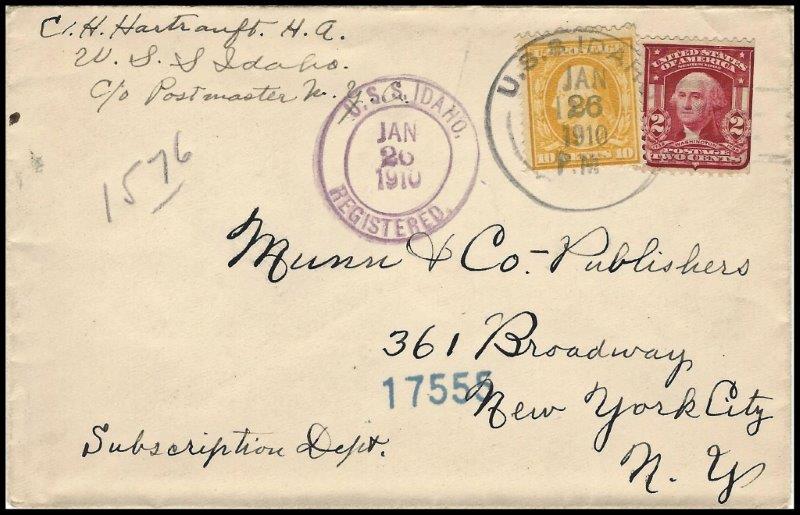 C. H. Hartranft. H. A.
U. S. S Idaho.
c/o Postmaster N. Y.
1576
U.S.S. IDAHO,
JAN
26
1910
REGISTERED.
U.S.S. IDAHO
JAN
26
1910
P.M
U.S. POSTAGE
10 CENTS 10
UNITED STATES
OF AMERICA
2 2
WASHINGTON
POSTAGE
TWO CENTS
Munn & Co- Publishers
361 Broadway
17555
New York City
Subscription Dept.
N. Y